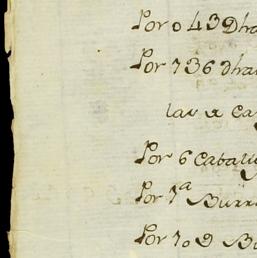 Por 0 43 Dha
Por 736 dha
las a Ca
Por 6 Caball
Por 7ª Burr
Por 70 D Bu